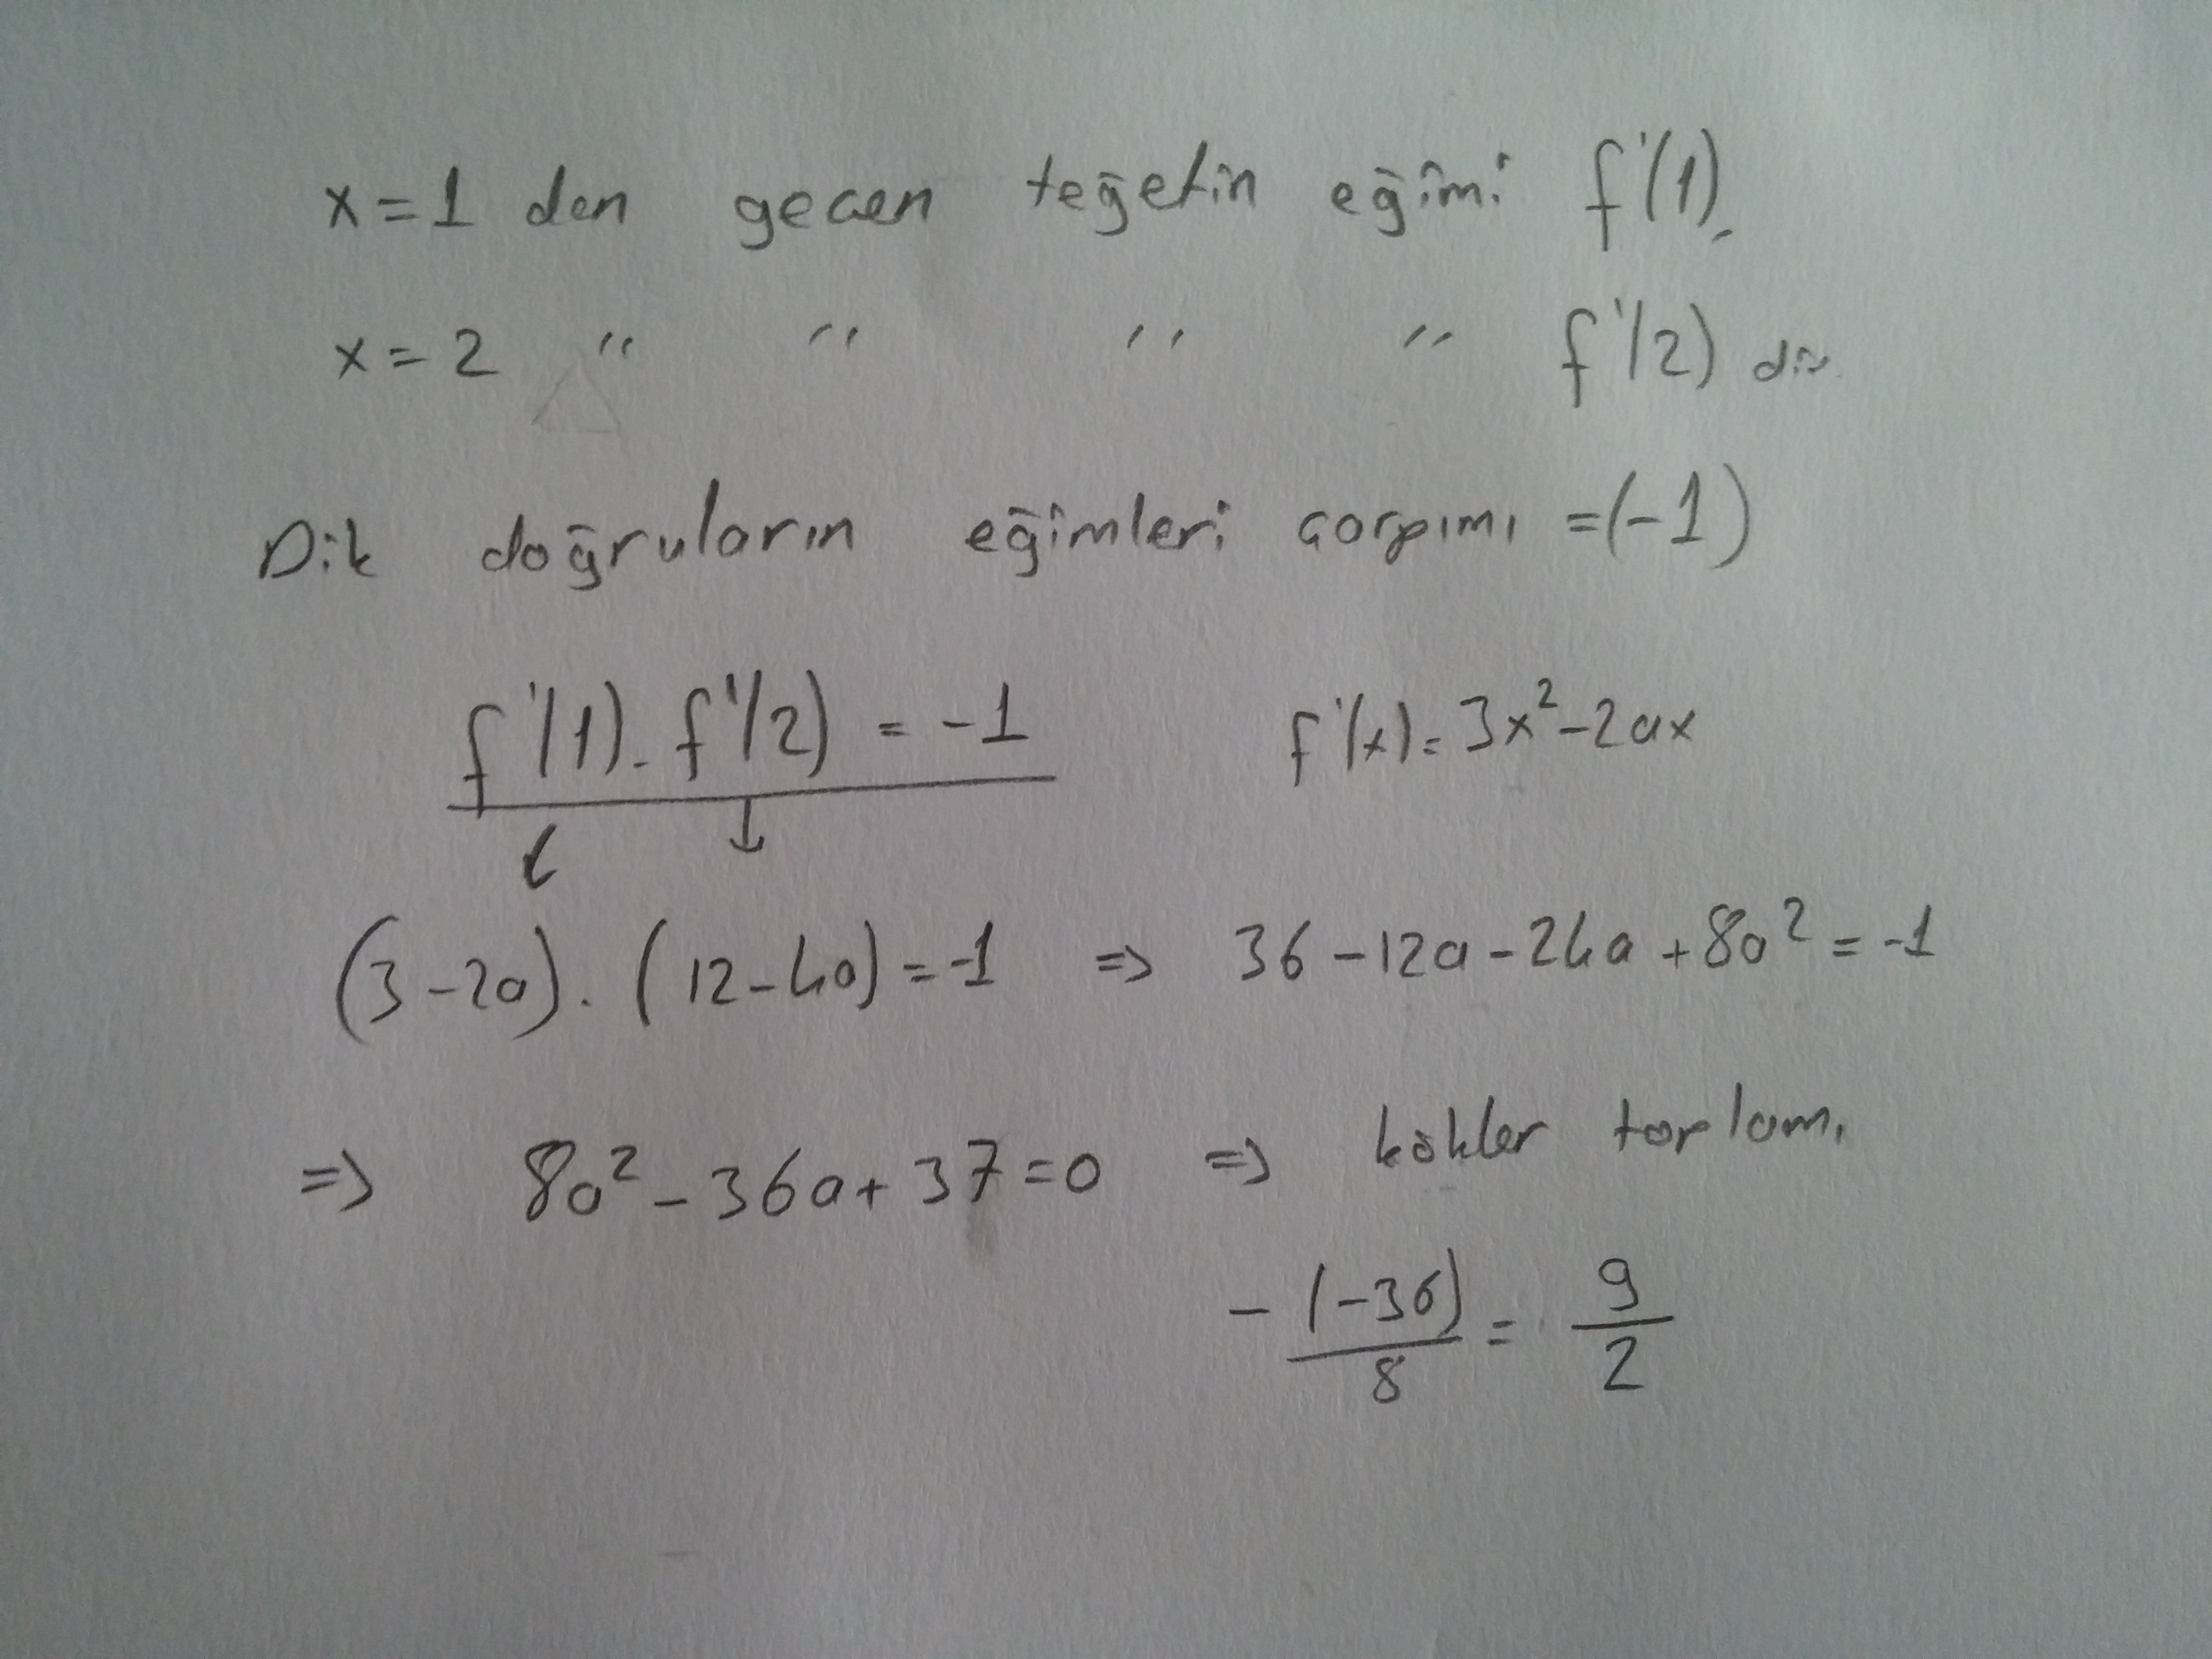 x=1 den geçen teğetin eğimi f'(1),
x=2 " " " " f'(2) dir.
Dik doğruların eğimleri çarpımı =(-1)
f'(1). f'(2) = -1 f'(x)= 3x²-2ax
(3-2a). (12-4a)=-1 => 36-12a-24a+8a²=-1
=> 8a²-36a+37=0 => kökler toplamı
-(-36)/8 = 9/2